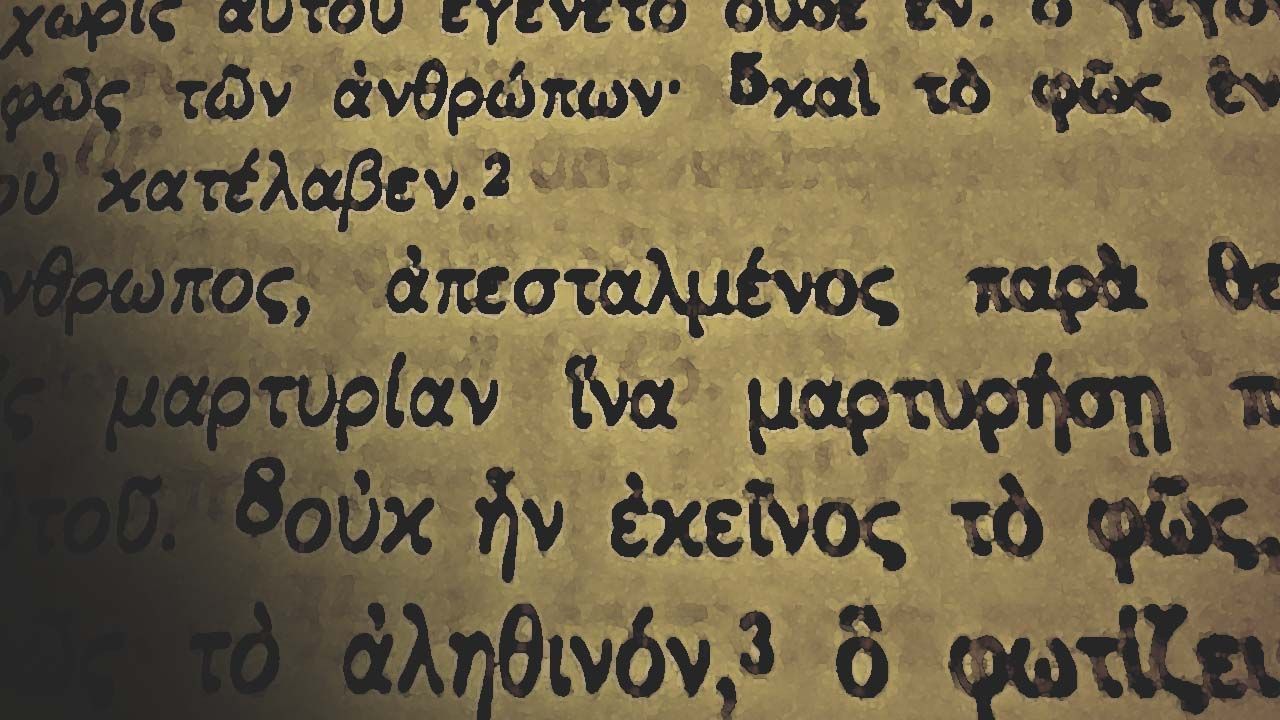 χωρὶς αὐτοῦ ἐγένετο οὐδὲ ἕν. ὃ γέγο
φῶς τῶν ἀνθρώπων· 5καὶ τὸ φῶς ἐν
οὐ κατέλαβεν.2
νθρωπος, ἀπεσταλμένος παρὰ θε
ς μαρτυρίαν ἵνα μαρτυρήσῃ π
ὐτοῦ. 8οὐκ ἦν ἐκεῖνος τὸ φῶς,
ῶς τὸ ἀληθινόν,3 ὃ φωτίζει